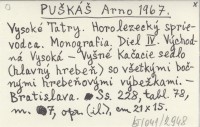 PUŠKÁŠ Arno 1967.
Vysoké Tatry. Horolezecký sprie-
vodca. Monografia. Diel IV. Východ-
ná Vysoká – Vyšné Kačacie sedlo
(hlavný hrebeň) so všetkými boč-
nými hrebeňovými výbežkami. –
Bratislava. Ss. 228, tabl. 78,
m 7, opr. (il.), cm 21×15.